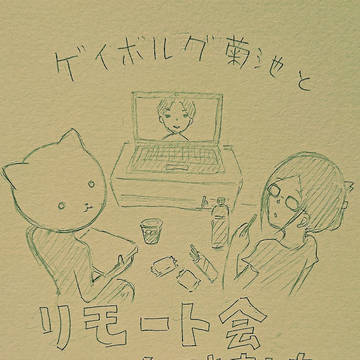 ゲイボルグ菊池と
リモート会